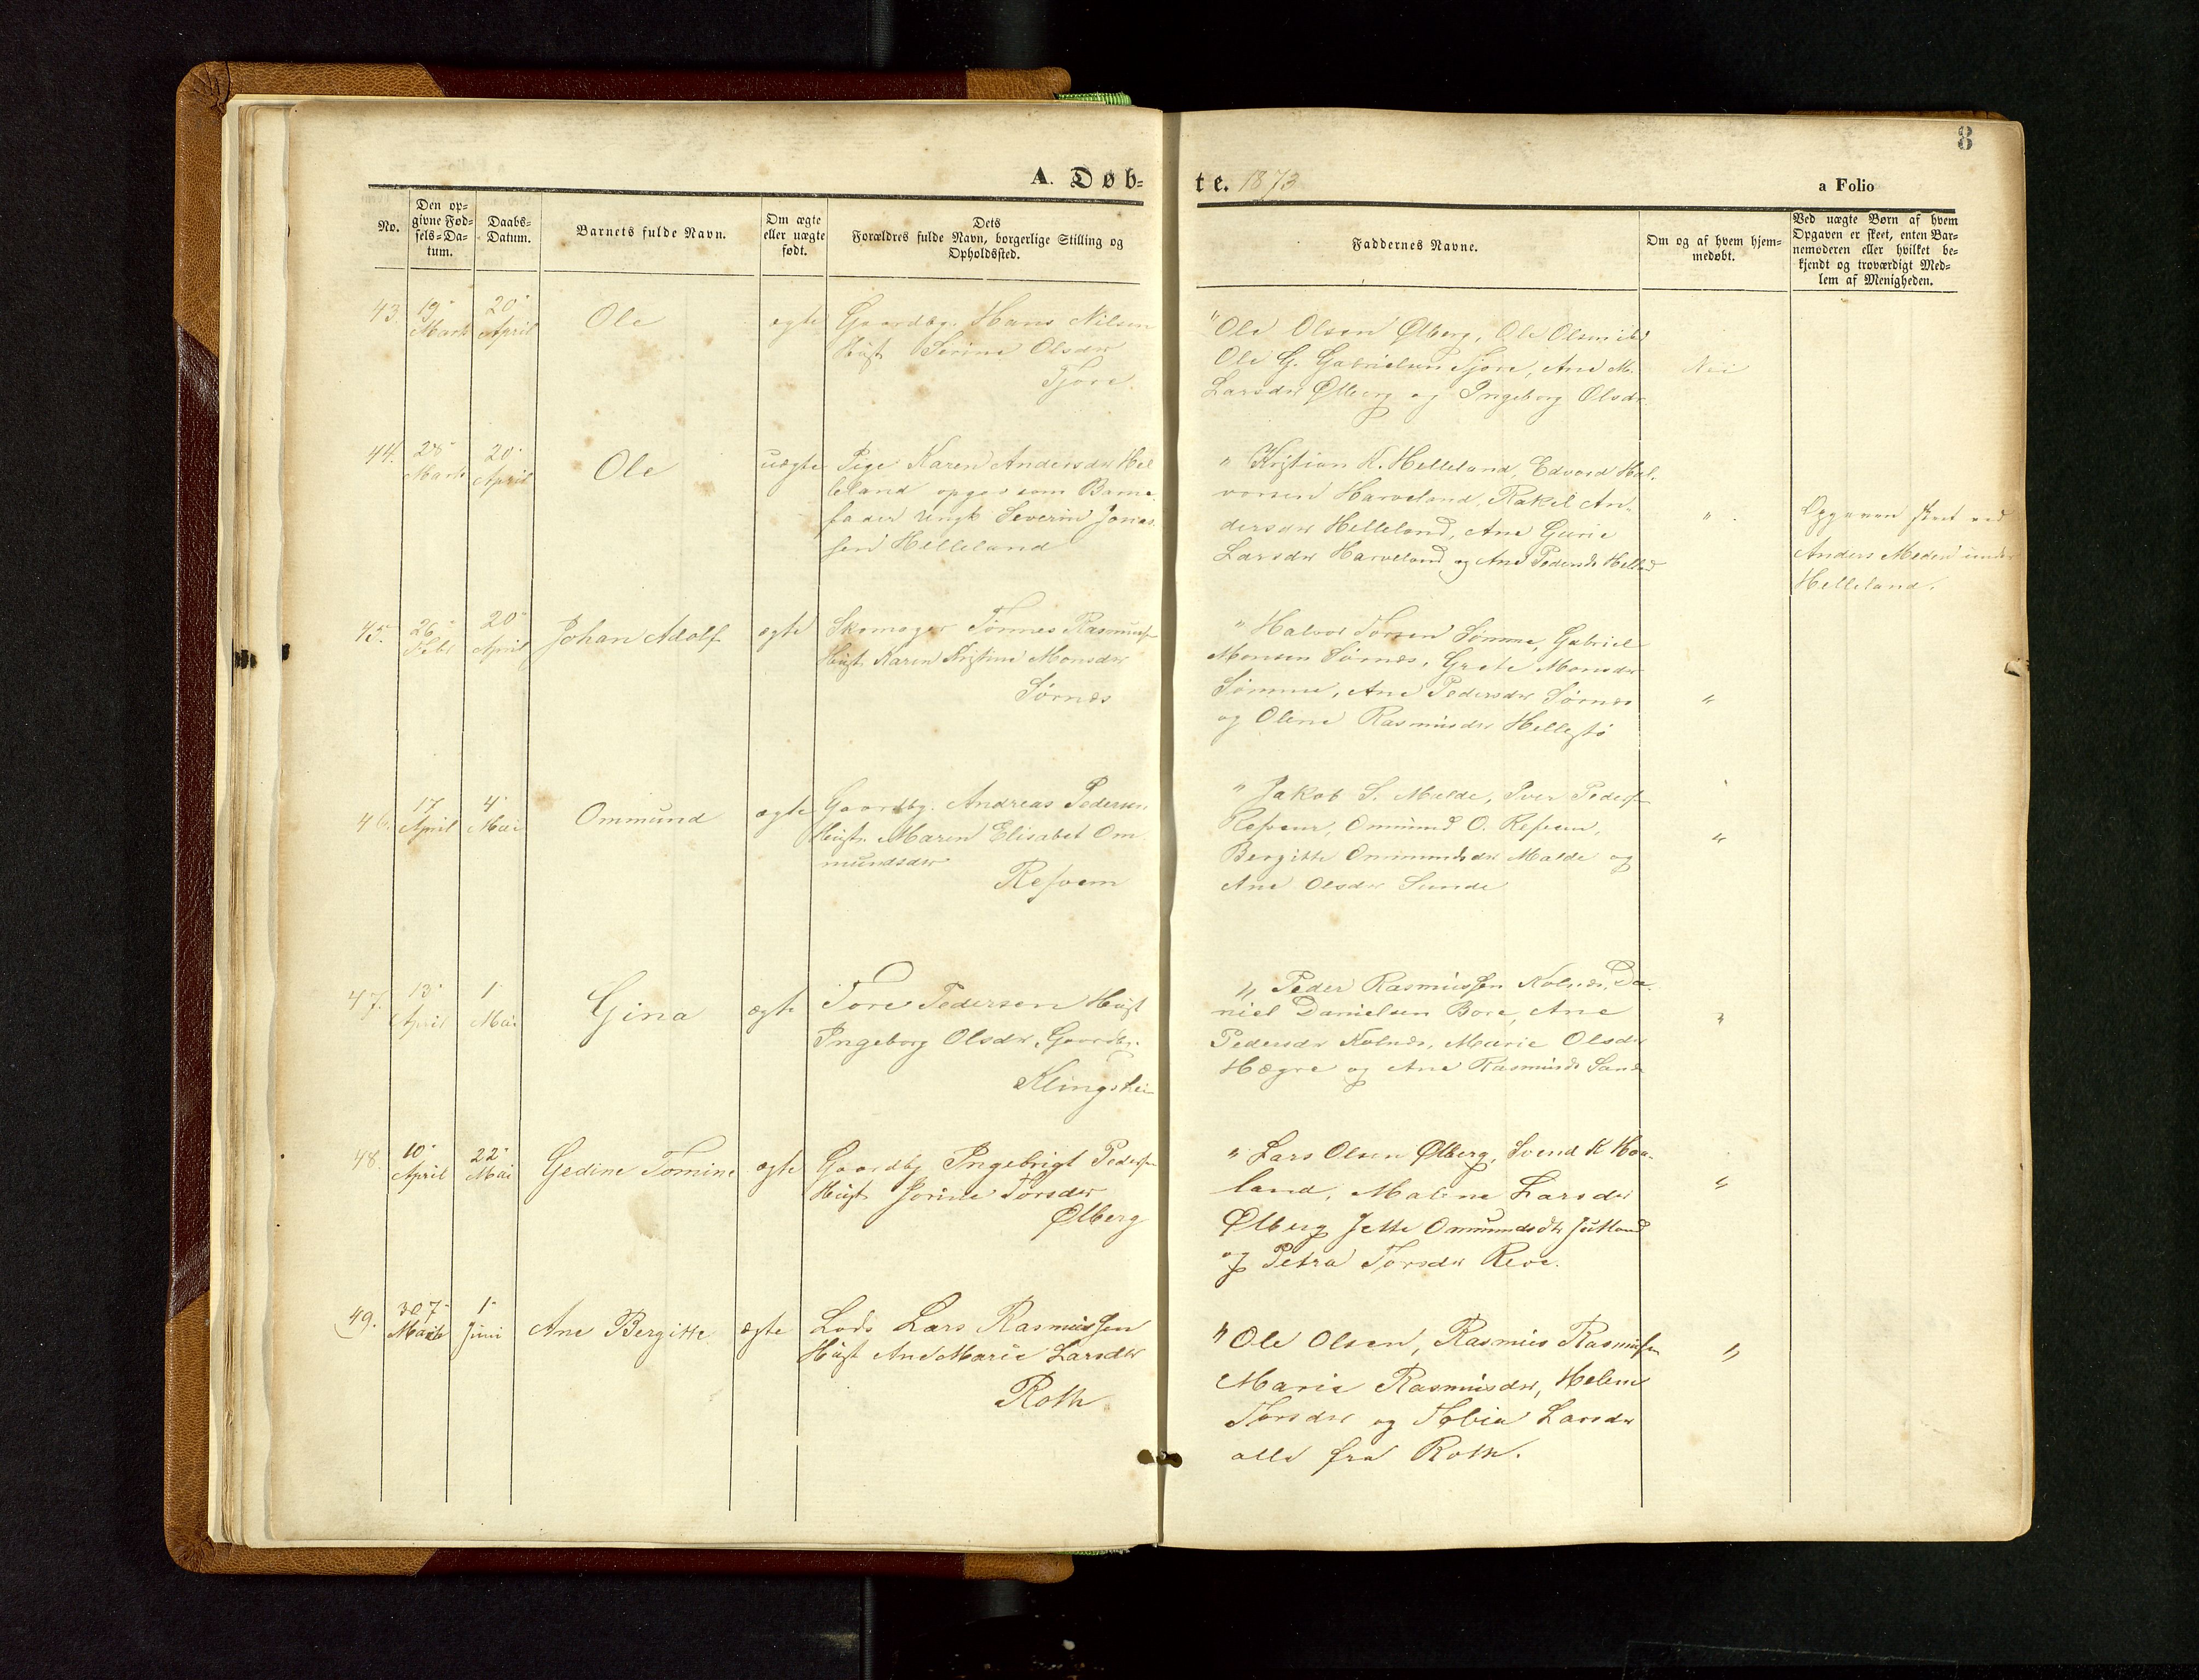 8
A. Døb=
te. 1873
a Folio
No.
Den op=
givne Fød=
sels=Da=
tum.
Daabs=
Datum.
Barnets fulde Navn.
Om ægte
eller uægte
født.
Dets
Forældres fulde Navn, borgerlige Stilling og
Opholdssted.
Faddernes Navne.
Om og af hvem hjem=
medøbt.
Ved uægte Børn af hvem
Opgaven er skeet, enten Bar=
nemoderen eller hvilket be=
kjendt og troværdigt Med=
lem af Menigheden.
43.
19
Marts
20
April
Ole
ægte
Gaardbr. Hans Nilsen
Hust. Serine Olsdr
Tjore.
" Ole Olsen Ølberg, Ole Olsen ibd
Ole G. Gabrielsen Tjore, Ane M.
Larsdr Ølberg og Ingeborg Olsdr.
Nei
44.
28
Marts
20
April
Ole
uægte
Pige Karen Andersdr Hel
leland opgav som Barne
fader Ungk. Severin Jonas
sen Helleland
" Kristian K. Helleland, Edvard Hal-
vorsen Harveland, Rakel An-
dersdr Helleland, Ane Gurie
Larsdr Harveland og Ane Pedersdr Hellld
"
Opgaven skeet ved
Anders Meden under
Helleland.
45.
26
Febr
20
April
Johan Adolf
ægte
Skomager Tønnes Rasmuss
Hust. Karen Kristine Monsdr
Sørnes
" Halvor Torsen Sømme, Gabriel
Monsen Sørnes, Grete Monsdr
Sømme, Ane Pedersdr Sørnes
og Oline Rasmusdr Hellestø
"
46.
17
April
4
Mai
Ommund
ægte
Gaardbr. Andreas Pedersen
Hustr. Maren Elisabet Om
mundsdr
Refvem
" Jakob S. Malde, Iver Peders
Ommund O.
Bergitte Ommundsdr Malde og
Ane Olsdr Sunde
"
47.
13
April
1
Mai
Gina
ægte
Tore Pedersen Hust
Ingeborg Olsdr, Gaardbr.
Klingshei
" Peder Rasmussen Kolnes, Da-
niel Danielsen Bore, Ane
Pedersdr Kolnes, Marie Olsdr
Hægre og Ane Rasmusdr Sande
"
48.
10
April
22
Mai
Gedine Tomine
ægte
Gaardbr Ingebrigt Peders
Hust. Jorine Torsdr
Ølberg
" Lars Olsen Ølberg, Svend K Haa-
land, Maline Larsdr
Ølberg Jette Ommundsdtr Jutland
og Petra Torsdr Reve.
"
49.
30
Marts
1
Juni
Ane Bergitte
ægte
Lods Lars Rasmussen
Hust Ane Marie Larsdtr
Roth
" Ole Olsen, Rasmus Rasmussen
Marie Rasmusdr, Helene
Torsdr og Tobia Larsdr
alle fra Roth.
"